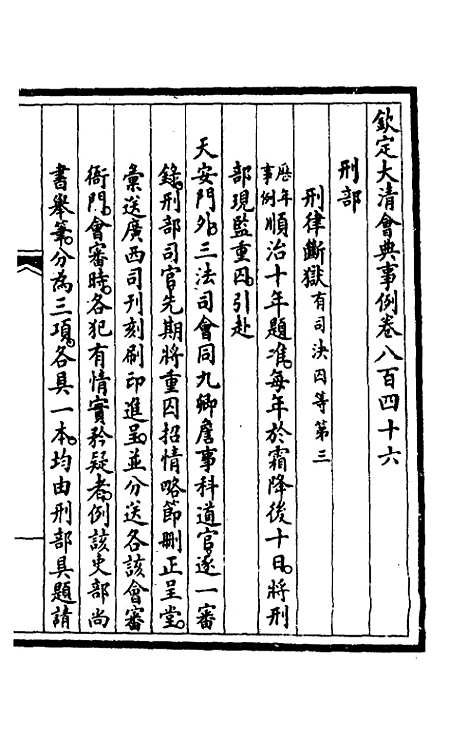 欽定大清會典事例卷八百四十六
刑部
刑律斷獄有司決囚等第三
歷年事例順治十年題准。每年於霜降後十日。將刑
部現監重囚。引赴
天安門外。三法司會同九卿詹事科道官逐一審
錄。刑部司官先期將重囚招情略節刪正呈堂。
彙送廣西司刊刻刷印進呈。並分送各該會審
衙門。會審時。各犯有情實矜疑者。例該吏部尚
書舉筆。分為三項。各具一本。均由刑部具題請